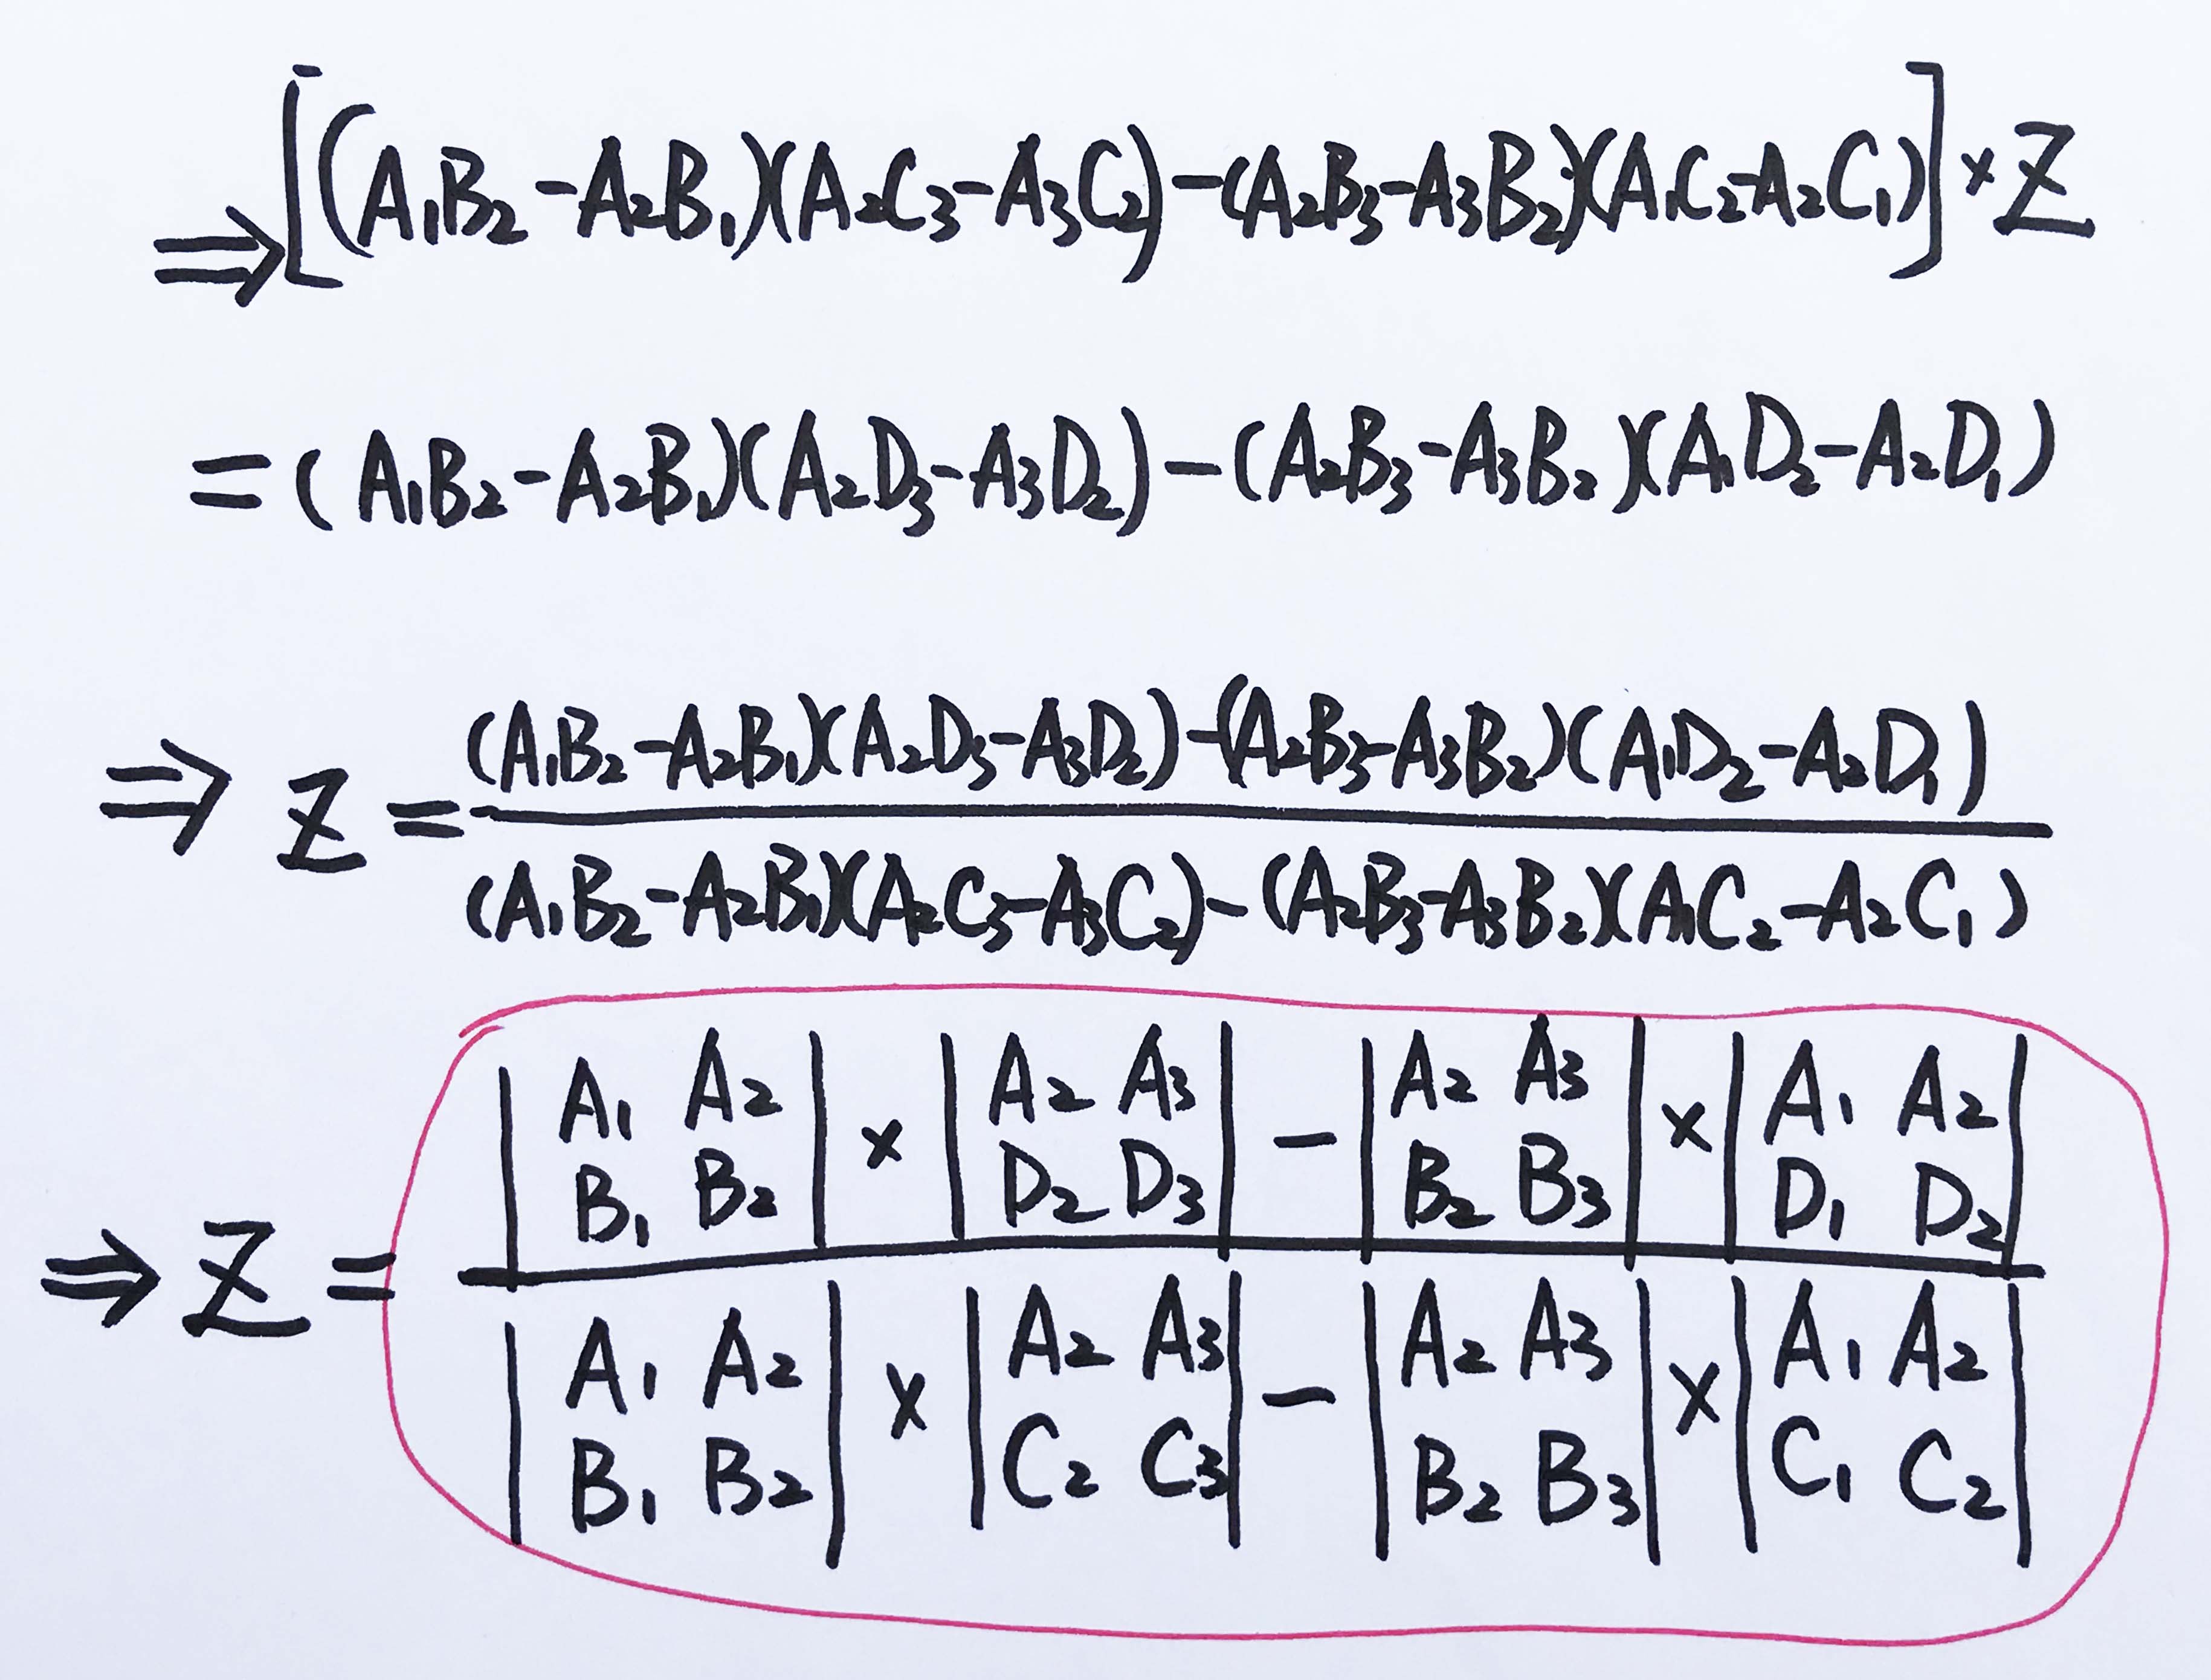 ⇒[(A₁B₂-A₂B₁)(A₂C₃-A₃C₂)-(A₂B₃-A₃B₂)(A₁C₂-A₂C₁)]×Z
=(A₁B₂-A₂B₁)(A₂D₃-A₃D₂)-(A₂B₃-A₃B₂)(A₁D₂-A₂D₁)
(A₁B₂-A₂B₁)(A₂D₃-A₃D₂)-(A₂B₃-A₃B₂)(A₁D₂-A₂D₁)
⇒ Z =
(A₁B₂-A₂B₁)(A₂C₃-A₃C₂)-(A₂B₃-A₃B₂)(A₁C₂-A₂C₁)
|A₁ A₂| × |A₂ A₃| - |A₂ A₃| × |A₁ A₂|
|B₁ B₂| |D₂ D₃| |B₂ B₃| |D₁ D₂|
⇒ Z =
|A₁ A₂| × |A₂ A₃| - |A₂ A₃| × |A₁ A₂|
|B₁ B₂| |C₂ C₃| |B₂ B₃| |C₁ C₂|